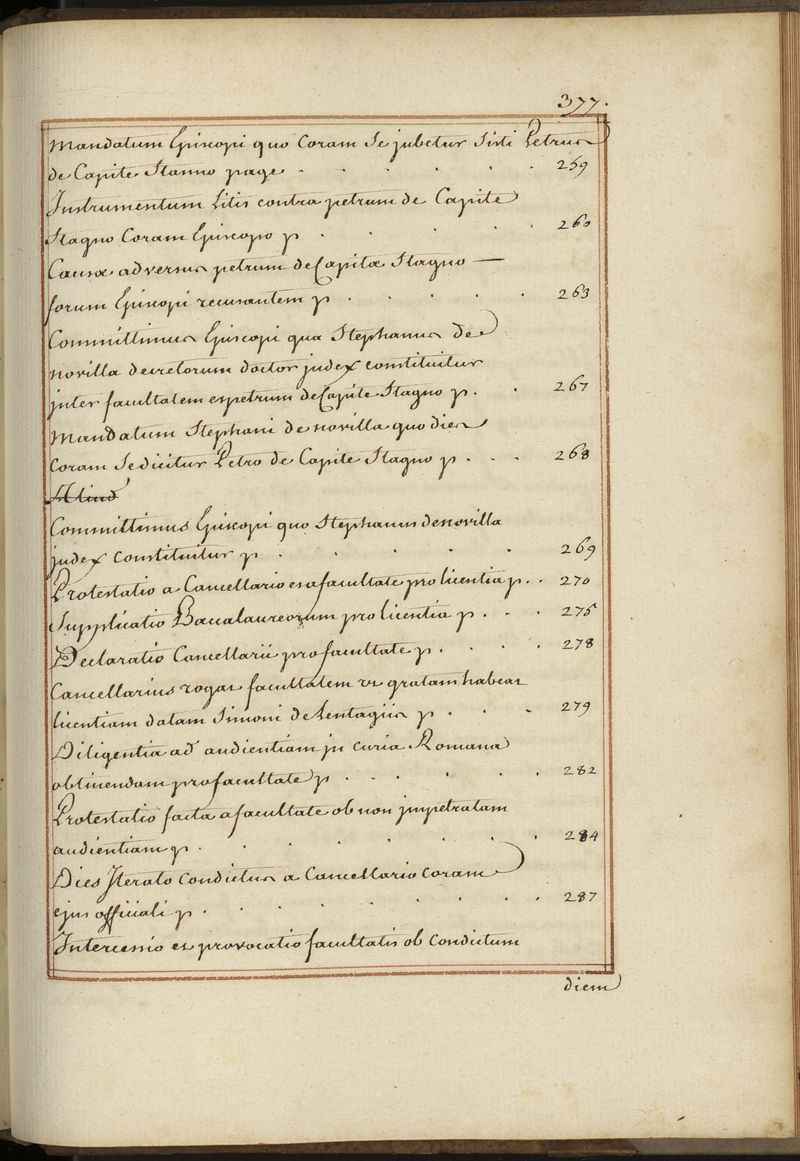 377.
Mandatum Episcopi quo Coram Se jubetur Sisti Petrus
de Capite Stanno page . . . . . 259
Instrumentum Litis contra petrum de Capite
Stagno Coram Episcopo p . . . . . 260
Causæ adversus petrum de Capitæ Stagno —
forum Episcopi recusantem p . . . . . 263
Committimus Episcopi qua Stephanus de
novilla decretorum doctor judex constituitur
inter facultatem et petrum de Capite Stagno p . . 267
Mandatum Stephani de novilla quo dies
Coram Se dicitur Petro de Capite Stagno p . . . 268
Aliud
Committimus Episcopi quo Stephanus de novilla
judex constituitur p . . . . . 269
Protestatio a Cancellario et a facultate pro licentia p . . 270
Supplicatio Baccalaureorum pro licentia p . . . 275
Declaratio Cancellarii pro facultate p . . . . 278
Cancellarius rogat facultatem ut gratam habeat
licentiam datam Simoni de Lentagiis p . . . 279
Diligentia ad audientiam jn curia Romana
obtinendam pro facultate p . . . . . 282
Protestatio facta a facultate ob non jmpetratam
audientiam p . . . . . . . 284
Dies Iterato Condictus a Cancellario Coram
ejus officiali p . . . . . . . 287
Intercessio et provocatio facultatis ob Condictum
diem